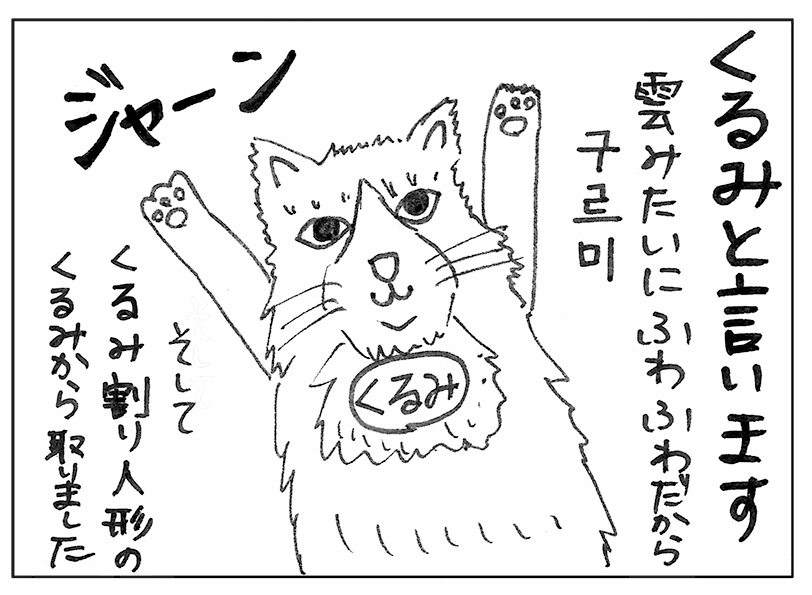 くるみと言います
雲みたいにふわふわだから
구르미
ジャーン
くるみ
そして
くるみ割り人形の
くるみから取りました